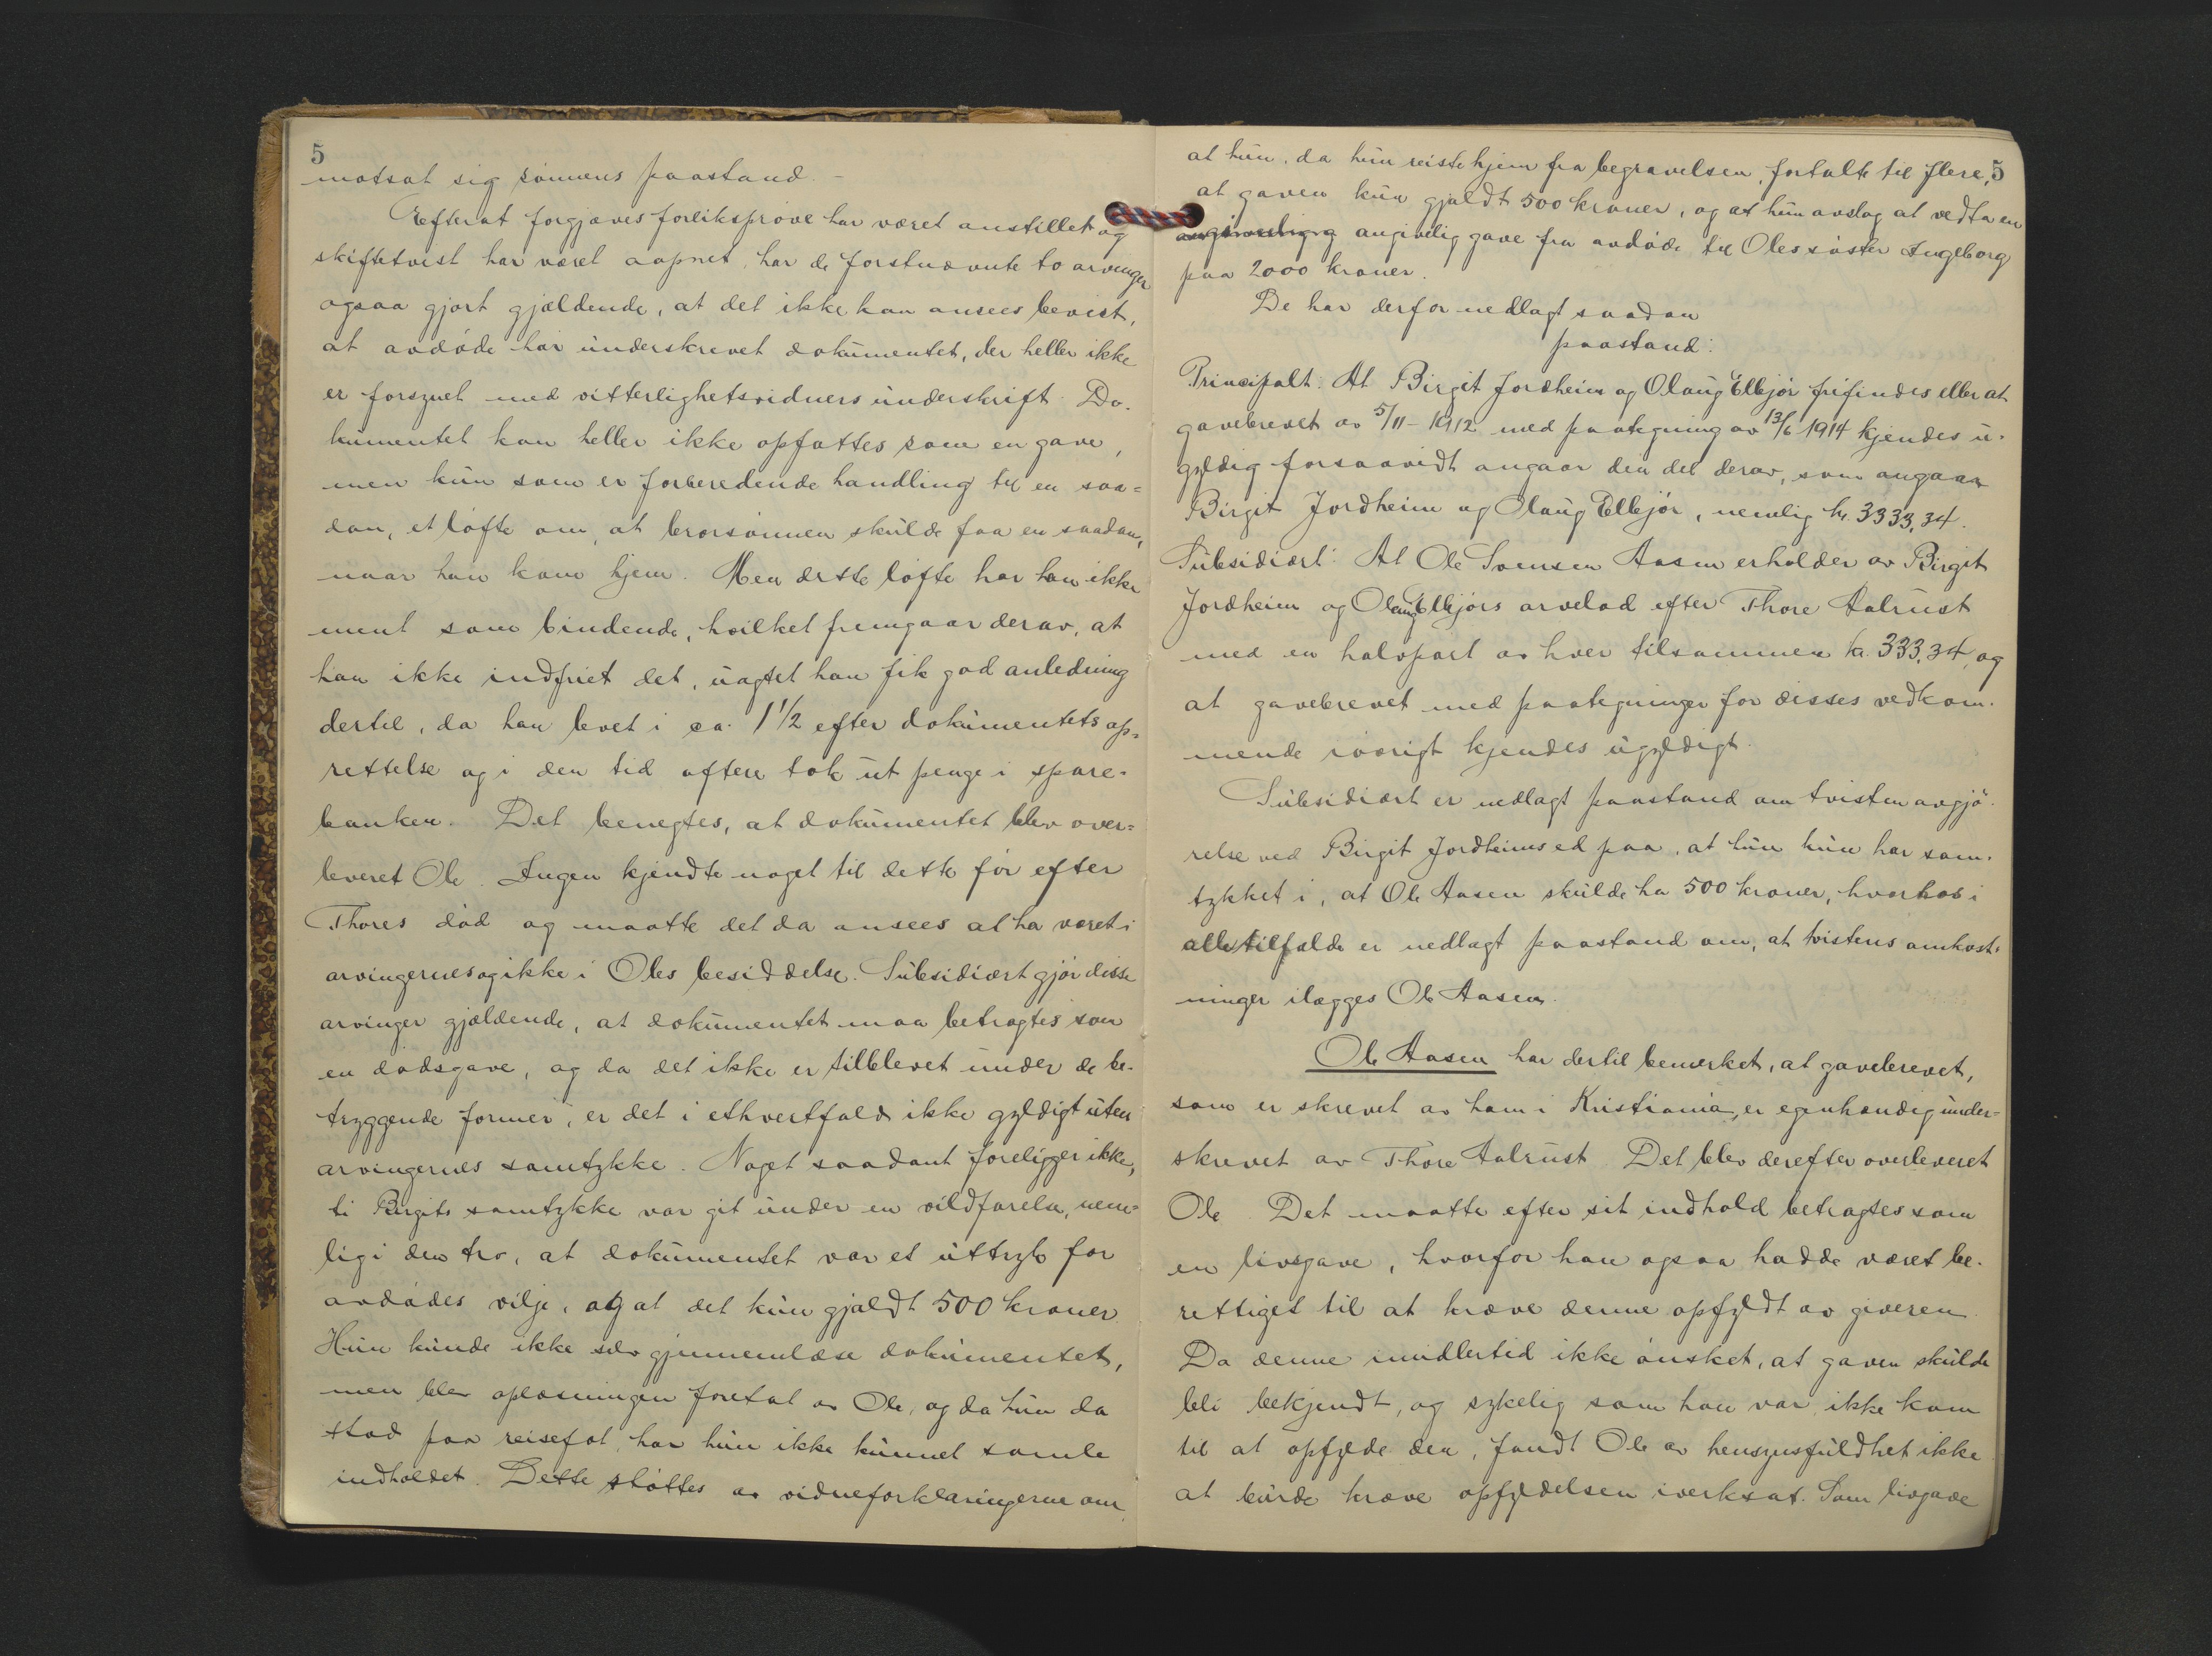 5
motsat sig sønnens paastand. -
Efterat forgjæves forliksprøve har været anstillet og
skiftetvist har været aapnet, har de førstnævnte to arvinger
ogsaa gjort gjældende, at det ikke kan ansees bevist,
at avdøde har underskrevet dokumentet, der heller ikke
er forsynet med vitterlighetsvidners underskrift. Do-
kumentet kan heller ikke opfattes som en gave,
men kun som er forberedende handling til en saa=
dan, et løfte om, at brorsønnen skulde faa en saadan,
naar han kom hjem. Men dette løfte har han ikke
ment som bindende, hvilket fremgaar derav, at
han ikke indfriet det, uagtet han fik god anledning
dertil, da han levet i ca. 1 1/2 efter dokumentets op=
rettelse og i den tid oftere tok ut penge i spare-
banken. Det benegtes, at dokumentet blev over=
leveret Ole. Ingen kjendte noget til dette før efter
Thores død og maatte det da ansees at ha været i
arvingernes og ikke i Oles besiddelse. Subsidiært gjør disse
arvinger gjældende, at dokumentet maa betragtes som
en dødsgave, og da det ikke er tilblevet under de be-
tryggende former, er det i ethvertfald ikke gyldigt uten
arvingernes samtykke. Noget saadant foreligger ikke,
ti Birgits samtykke var git under en vildfarelse, nem=
lig i den tro, at dokumentet var et uttryk for
avdødes vilje, og at det kun gjaldt 500 kroner.
Hun kunde ikke selv gjennemlæse dokumentet,
men blev oplæsningen foretat av Ole, og da hun da
stod paa reisefot, har hun ikke kunnet samle
indholdet. Dette støttes av vidneforklaringerne om
at hun, da hun reiste hjem fra begravelsen, fortalte til flere, 5
at gaven kun gjaldt 500 kroner, og at hun avslog at vedta en
angivelig gave fra avdøde til Oles søster Ingeborg
paa 2000 kroner.
De har derfor nedlagt saadan
paastand:
Principalt: At Birgit Jordheim og Olaug Ellejør frifindes eller at
gavebrevet av 5/11-1912 med paategning av 13/6 1914 kjendes u-
gyldig forsaavidt angaar den del derav, som angaar
Birgit Jordheim og Olaug Ellejør, nemlig kr. 3333,34.
Subsidiært: At Ole Svensen Aasen erholder av Birgit
Jordheim og Olaug Ellejørs arvelod efter Thore Aalrust
med en halvpart av hver tilsammen kr. 333,34, og
at gavebrevet med paategninger for disses vedkom-
mende iøvrigt kjendes ugyldigt.
Subsidiært er nedlagt paastand om tvistens avgjø-
relse ved Birgit Jordheims ed paa, at hun kun har sam-
tykket i, at Ole Aasen skulde ha 500 kroner, hvorhos i
alle tilfælde er nedlagt paastand om, at tvistens omkost-
ninger ilægges Ole Aasen.
Ole Aasen har dertil bemerket, at gavebrevet,
som er skrevet av ham i Kristiania, er egenhændig under=
skrevet av Thore Aalrust. Det blev derefter overleveret
Ole. Det maatte efter sit indhold betragtes som
en livsgave, hvorfor han ogsaa hadde været be-
rettiget til at kræve denne opfyldt av giveren.
Da denne imidlertid ikke ønsket, at gaven skulde
bli bekjendt, og sykelig som han var, ikke kom
til at opfylde den, fandt Ole av hensynsfuldhet ikke
at burde kræve opfyldelsen iverksat. Som livgave